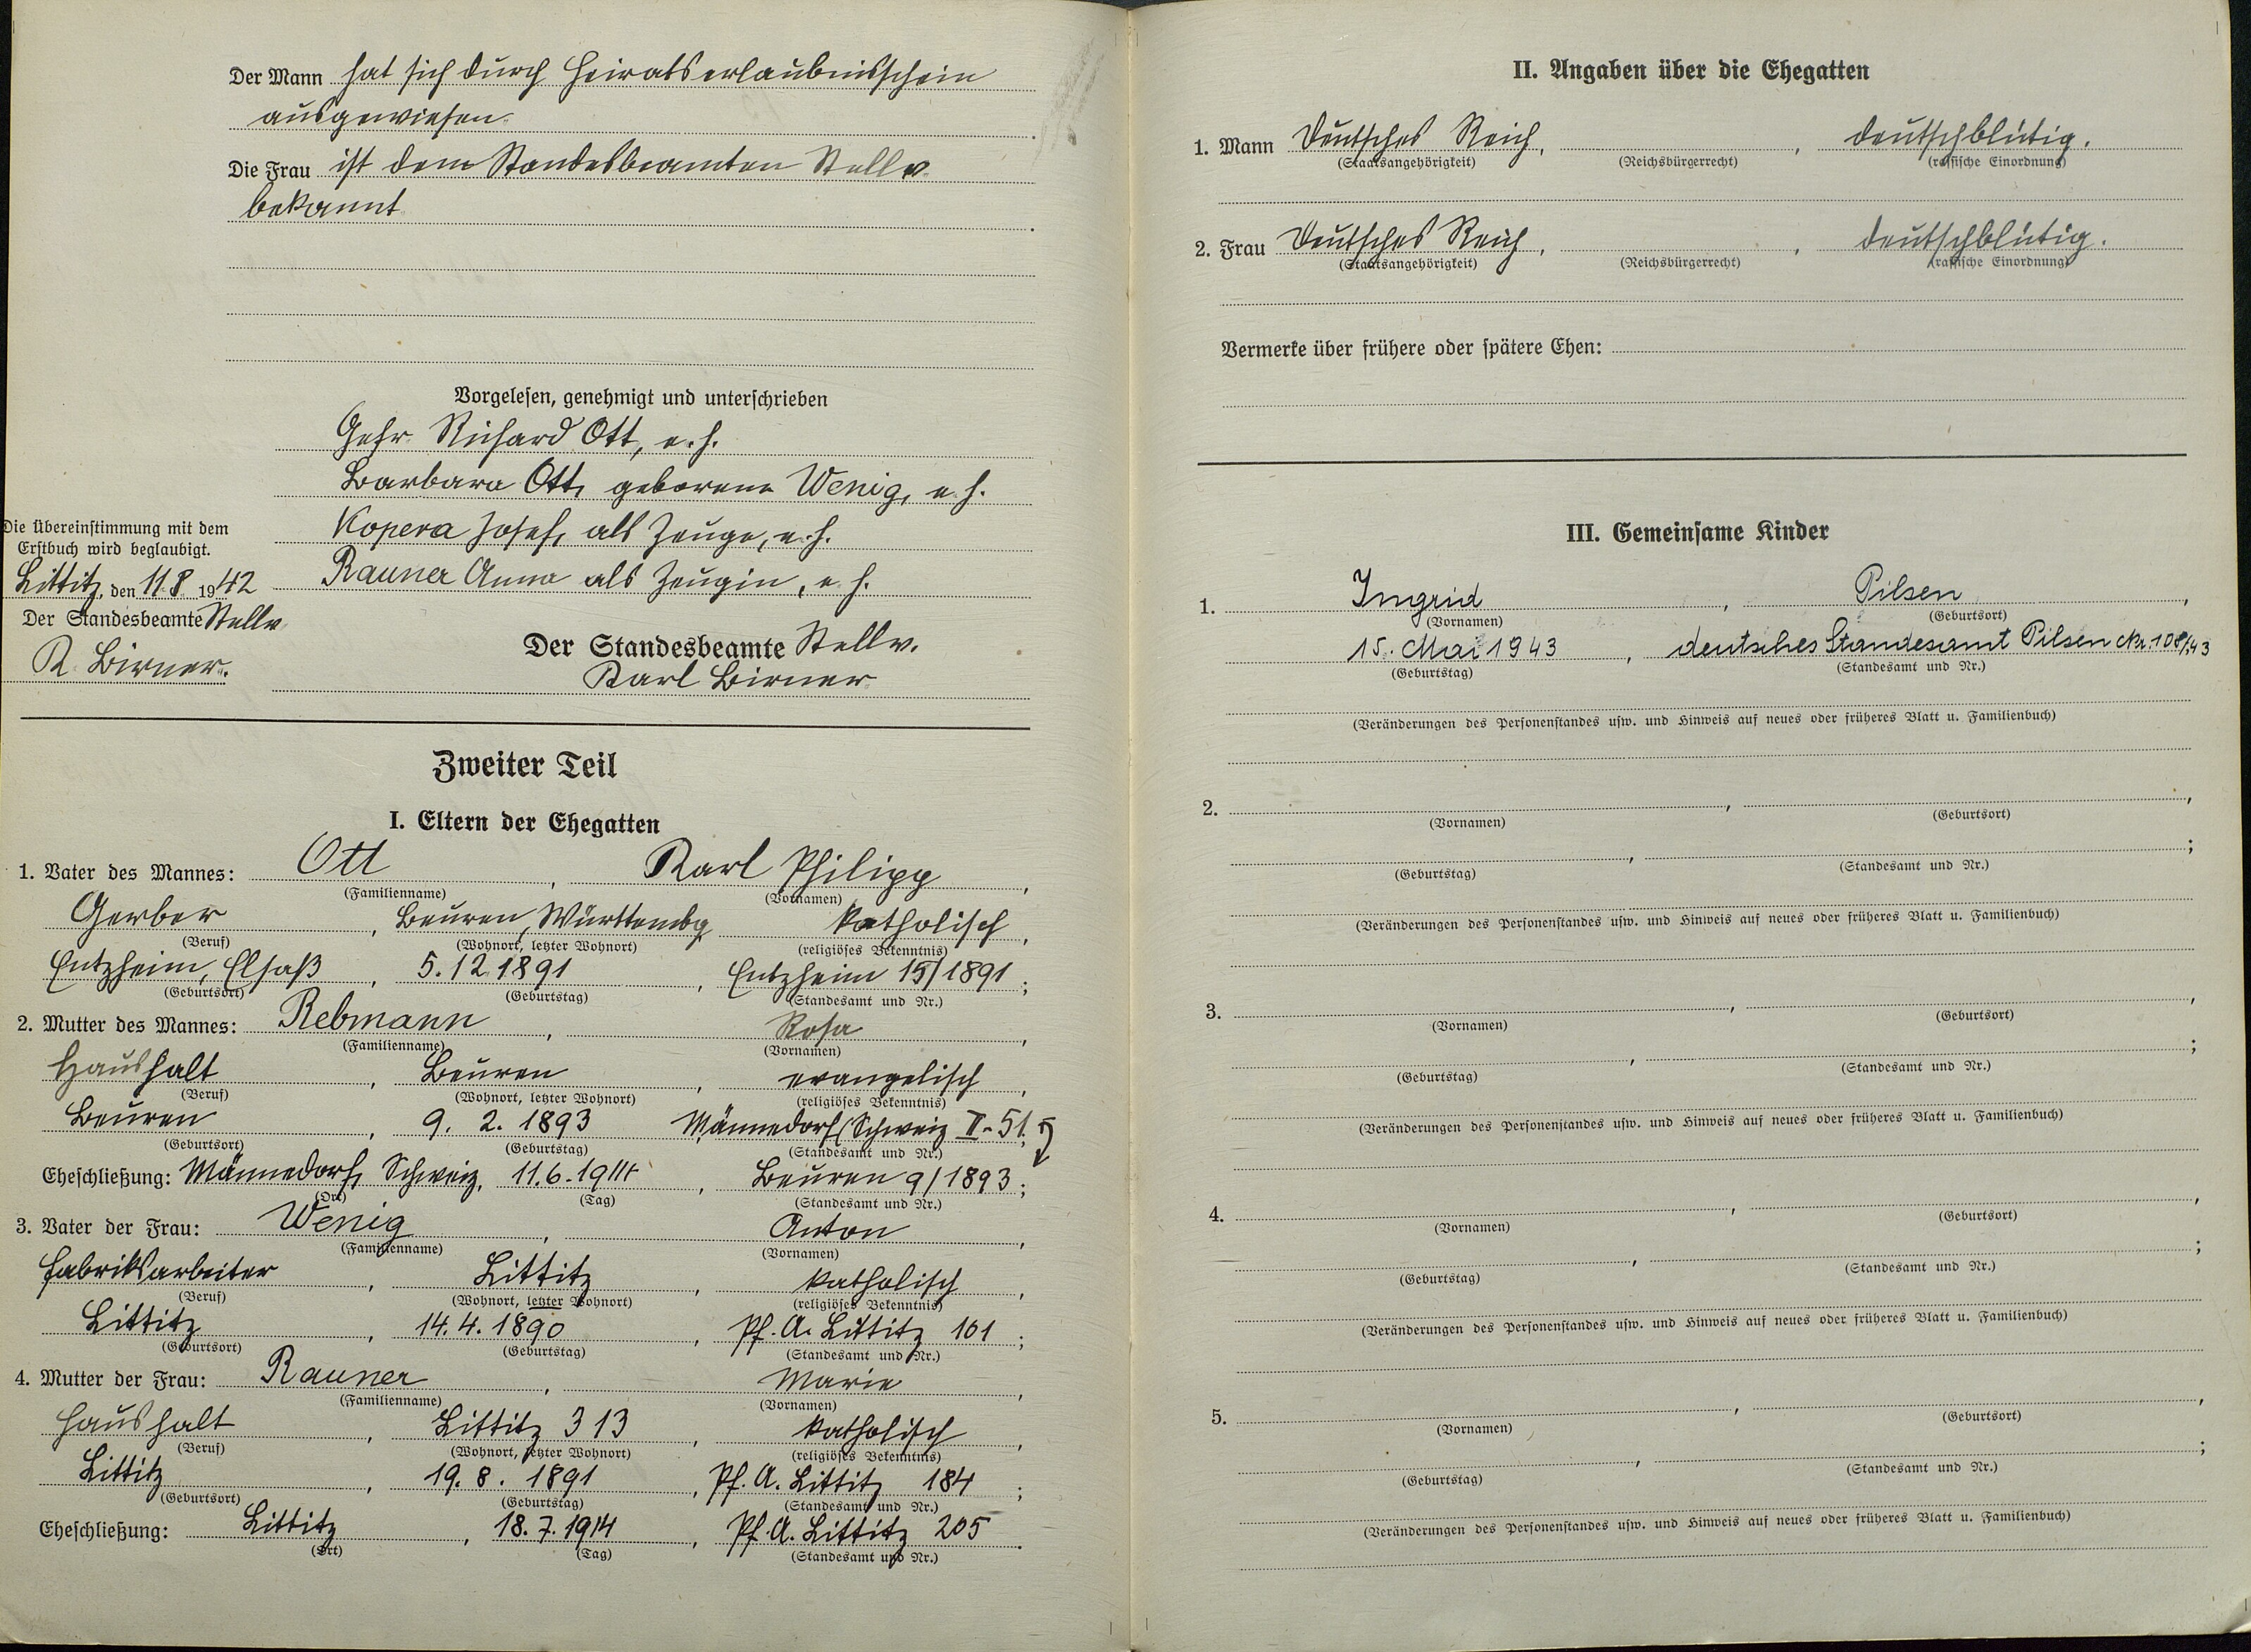 Der Mann hat sich durch Heiratserlaubnisschein
ausgewiesen.
Die Frau ist dem Standesbeamten Stellv.
bekannt.
Vorgelesen, genehmigt und unterschrieben
Gefr. Richard Ott, e. h.
Barbara Ott, geborene Wenig, e. h.
Kopera Josef, als Zeuge, e. h.
Rauner Anna als Zeugin, e. h.
Der Standesbeamte Stellv.
Karl Birner
Die Übereinstimmung mit dem
Erstbuch wird beglaubigt.
Littitz, den 11. 8. 1942
Der Standesbeamte Stellv.
K. Birner.
Zweiter Teil
I. Eltern der Ehegatten
1. Vater des Mannes: Ott, Karl Philipp,
(Familienname) (Vornamen)
Gerber, Beuren, Württembg. katholisch,
(Beruf) (Wohnort, letzter Wohnort) (religiöses Bekenntnis)
Entzheim, Elsaß, 5. 12. 1891, Entzheim 15/1891;
(Geburtsort) (Geburtstag) (Standesamt und Nr.)
2. Mutter des Mannes: Rebmann, Rosa,
(Familienname) (Vornamen)
Haushalt, Beuren, evangelisch,
(Beruf) (Wohnort, letzter Wohnort) (religiöses Bekenntnis)
Beuren, 9. 2. 1893 Männedorf/Schweiz II-51;
(Geburtsort) (Geburtstag) (Standesamt und Nr.)
Eheschließung: Männedorf, Schweiz, 11.6.1914, Beuren 9/1893;
(Ort) (Tag) (Standesamt und Nr.)
3. Vater der Frau: Wenig, Anton,
(Familienname) (Vornamen)
Fabriksarbeiter, Littitz, katholisch,
(Beruf) (Wohnort, letzter Wohnort) (religiöses Bekenntnis)
Littitz, 14. 4. 1890, Pf. A. Littitz 101;
(Geburtsort) (Geburtstag) (Standesamt und Nr.)
4. Mutter der Frau: Rauner, Marie,
(Familienname) (Vornamen)
Haushalt, Littitz 313, katholisch,
(Beruf) (Wohnort, letzter Wohnort) (religiöses Bekenntnis)
Littitz, 19. 8. 1891, Pf. A. Littitz 184;
(Geburtsort) (Geburtstag) (Standesamt und Nr.)
Eheschließung: Littitz, 18. 7. 1914, Pf. A. Littitz 205.
(Ort) (Tag) (Standesamt und Nr.)
II. Angaben über die Ehegatten
1. Mann Deutsches Reich, , deutschblütig.
(Staatsangehörigkeit) (Reichsbürgerrecht) (rassische Einordnung)
2. Frau Deutsches Reich, , deutschblütig.
(Staatsangehörigkeit) (Reichsbürgerrecht) (rassische Einordnung)
Vermerke über frühere oder spätere Ehen:
III. Gemeinsame Kinder
1. Ingrid, Pilsen,
(Vornamen) (Geburtsort)
15. Mai 1943, deutsches Standesamt Pilsen Nr. 108/43
(Geburtstag) (Standesamt und Nr.)
(Veränderungen des Personenstandes usw. und Hinweis auf neues oder früheres Blatt u. Familienbuch)
2. , ,
(Vornamen) (Geburtsort)
, ;
(Geburtstag) (Standesamt und Nr.)
(Veränderungen des Personenstandes usw. und Hinweis auf neues oder früheres Blatt u. Familienbuch)
3. , ,
(Vornamen) (Geburtsort)
, ;
(Geburtstag) (Standesamt und Nr.)
(Veränderungen des Personenstandes usw. und Hinweis auf neues oder früheres Blatt u. Familienbuch)
4. , ,
(Vornamen) (Geburtsort)
, ;
(Geburtstag) (Standesamt und Nr.)
(Veränderungen des Personenstandes usw. und Hinweis auf neues oder früheres Blatt u. Familienbuch)
5. , ,
(Vornamen) (Geburtsort)
, ;
(Geburtstag) (Standesamt und Nr.)
(Veränderungen des Personenstandes usw. und Hinweis auf neues oder früheres Blatt u. Familienbuch)